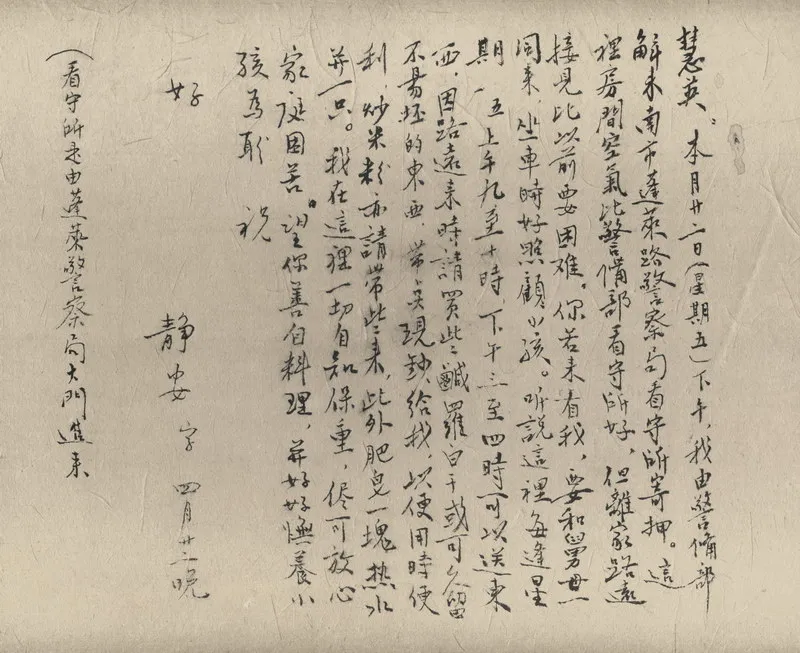 慧英。本月廿二日(星期五)下午,我由警備部
解來南市蓬萊路警察局看守所寄押。這
裡房間空氣比警備部看守所好,但離家路遠
接見比以前要困难。你若來看我,要和舅母
同來,坐車時好照顧小孩。听說這裡每逢星
期一、五上午九至十時下午三至四時可以送東
西,因路遠來時請買些鹹羅白干或可久留
不易坯的東西,帶點現鈔給我,以便用時便
利,炒米粉亦請帶些來,此外肥皂一塊热水
并一只。我在這裡一切自知保重,儘可放心
家庭困苦。望你善自料理,并好好撫養小
孩為盼 祝
好
静安 字 四月廿二晚
(看守所是由蓬萊警察局大門進來